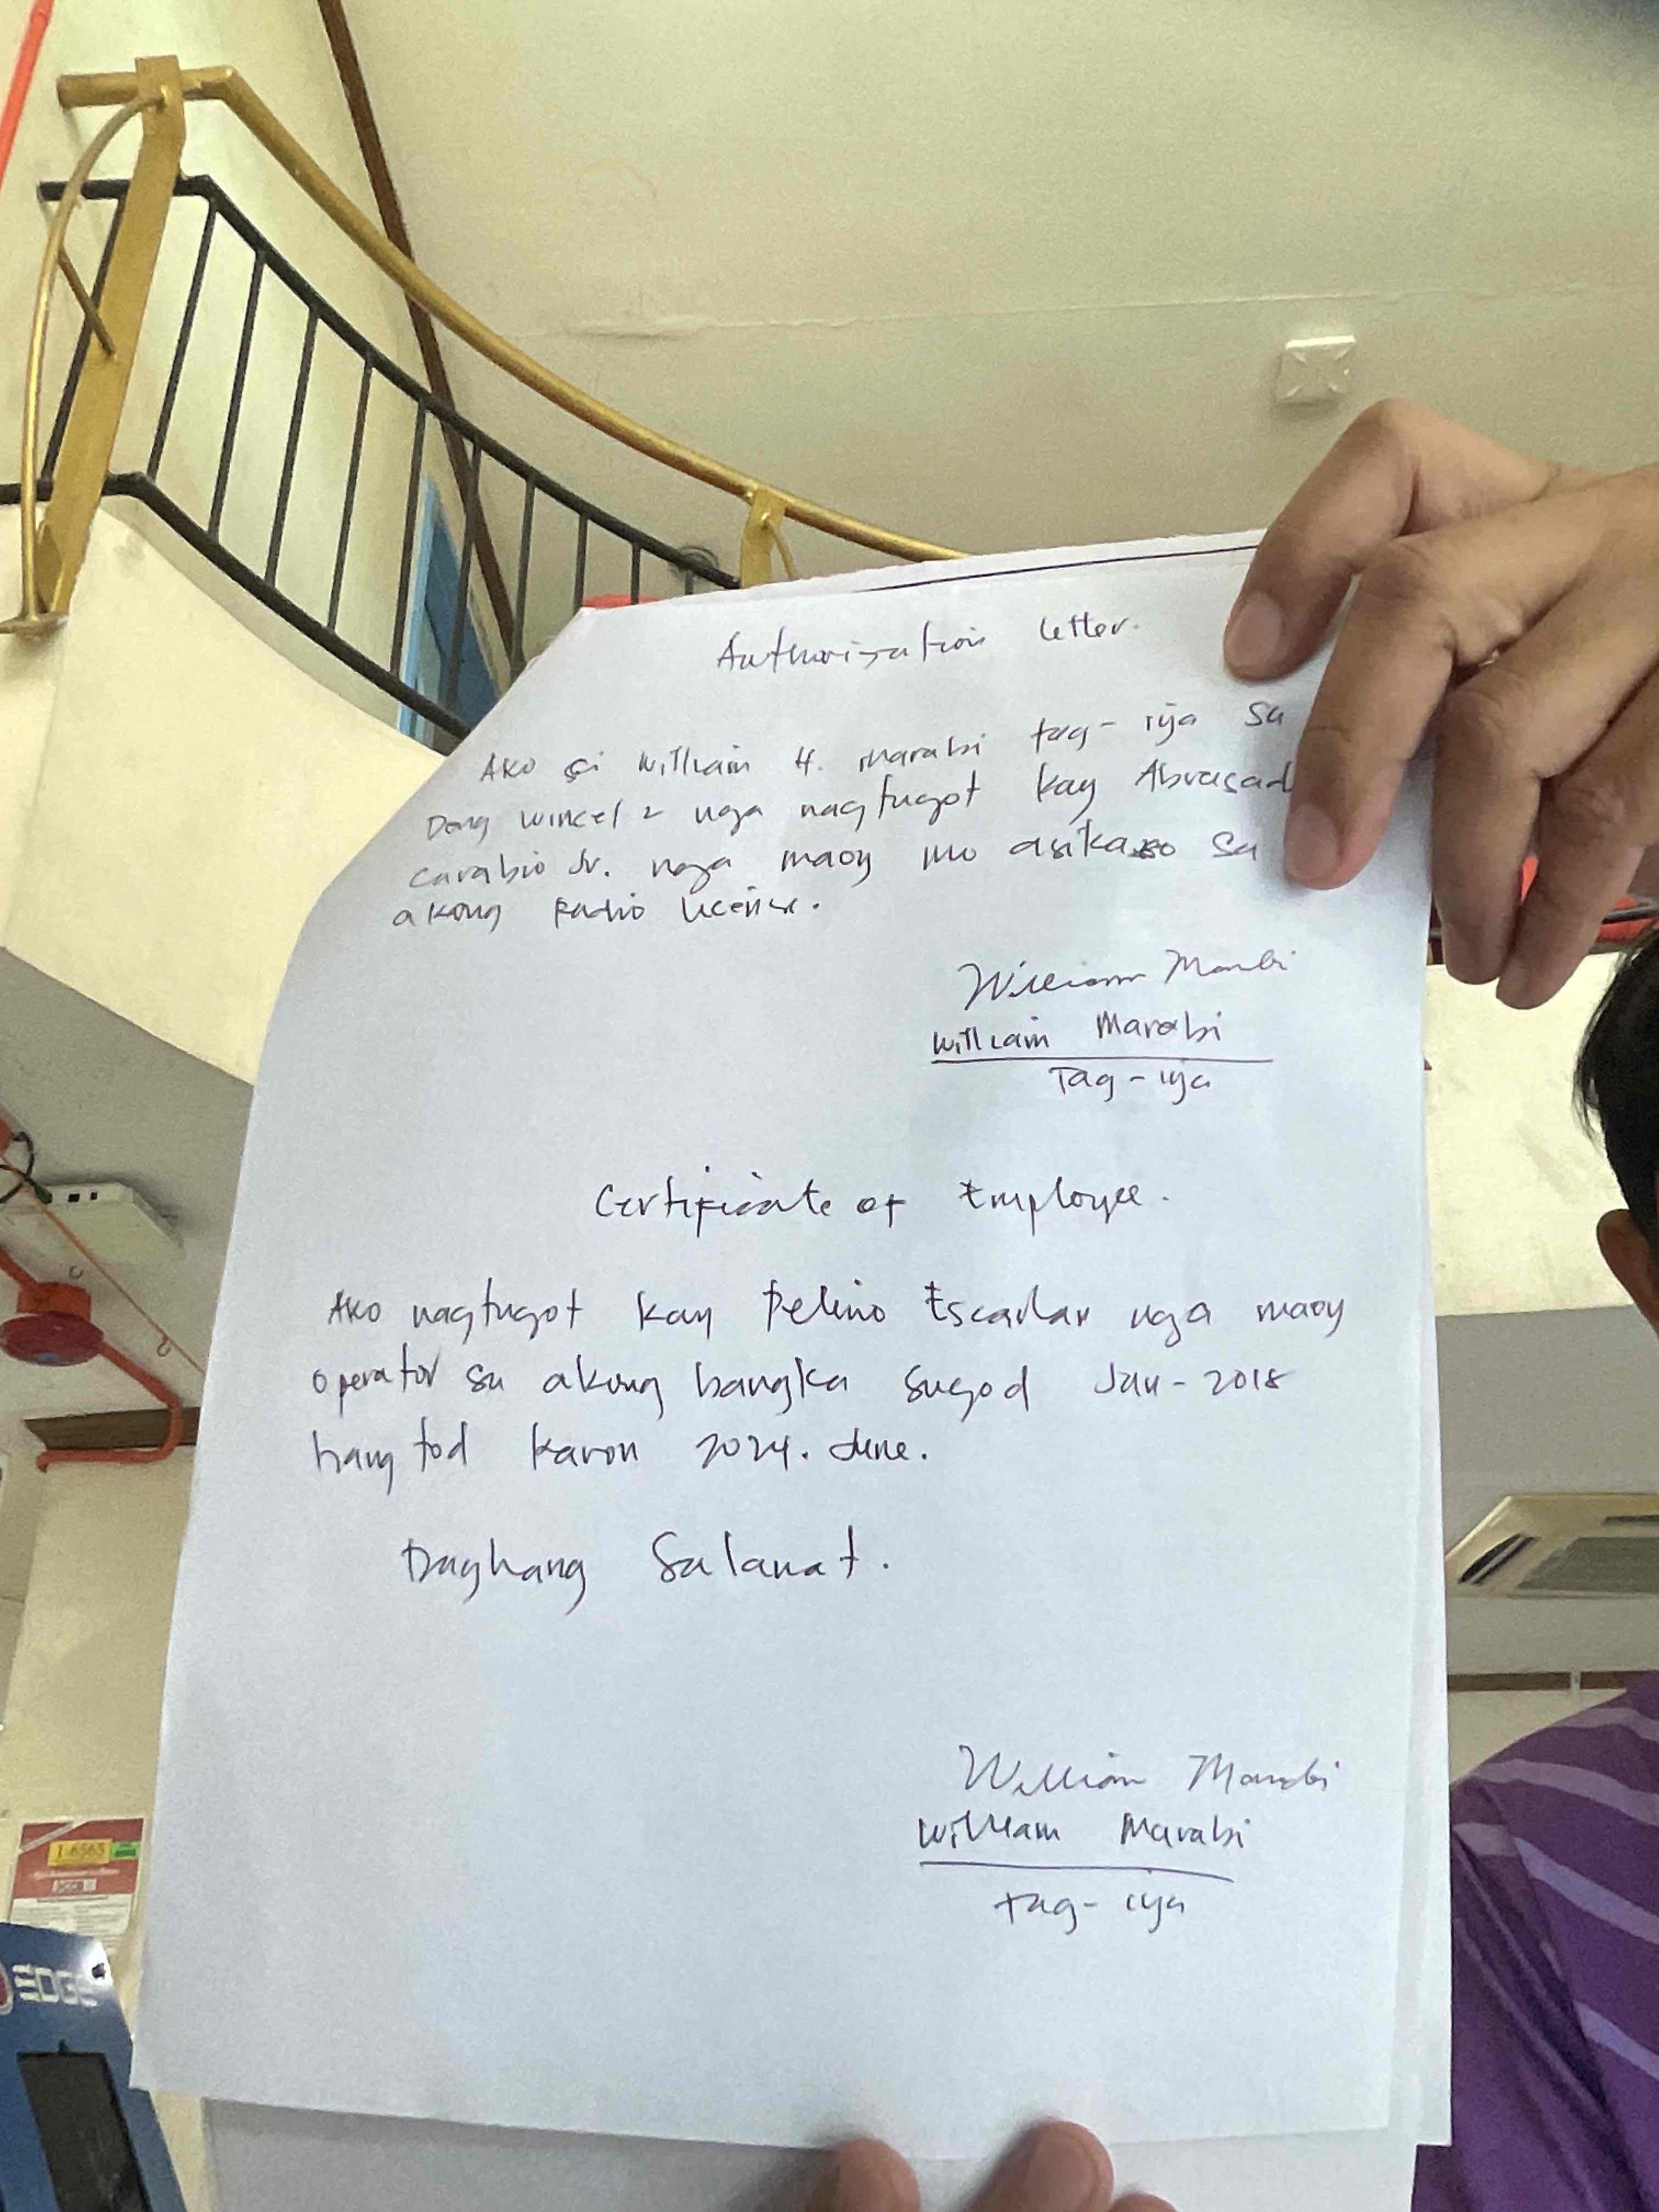 Authorization letter.
Ako si William H. Marabi tag-iya sa
Dong Wincel 2 nga nagtugot kay Abrasad
Carabio Jr. nga maoy mo asikaso sa
akong Radio License.
William Marabi
William Marabi
Tag-iya
Certificate of Employee.
Ako nagtugot kay Pelino Escarlar nga maoy
operator sa akong bangka sugod Jan-2018
hangtod karon 2024. June.
Daghang Salamat.
William Marabi
William Marabi
tag-iya
1-6565
EDGE